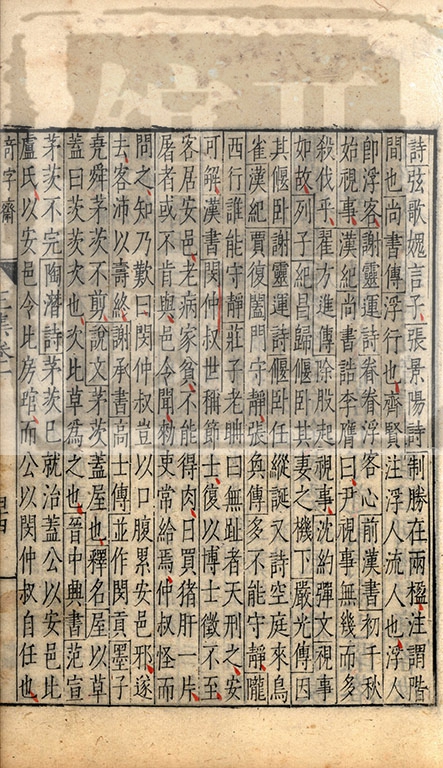 詩弦歌媿言子張景陽詩制勝在兩楹注謂階
間也尚書傳浮行也齊賢注浮人流人也浮人
即浮客謝靈運詩眷眷浮客心前漢書初千秋
始視事漢紀尚書誥李膺曰尹視事無幾而多
殺伐乎翟方進傳除股起視事沈約彈文視事
如故列子紀昌歸偃卧其妻之機下嚴光傳因
其偃卧謝靈運詩偃卧任縱誕又詩空庭來鳥
雀漢紀賈復闔門守靜張奐傳多不能守靜隴
西行誰能守靜莊子老聃曰無趾者天刑之安
可解漢書閔仲叔世稱節士復以博士徵不至
客居安邑老病家貧不能得肉日買猪肝一片
屠者或不肯與邑令聞勑吏常給焉仲叔怪而
問之知乃歎曰閔仲叔豈以口腹累安邑邪遂
去客沛以壽終謝承書高士傳並作閔貢墨子
堯舜茅茨不剪說文茅茨蓋屋也釋名屋以草
蓋曰茨茨次也次比草為之也晉中興書范宣
茅茨不完陶潛詩茅茨已就治蓋公以安邑比
盧氏以安邑令比房琯而公以閔仲叔自任也
奇字齋